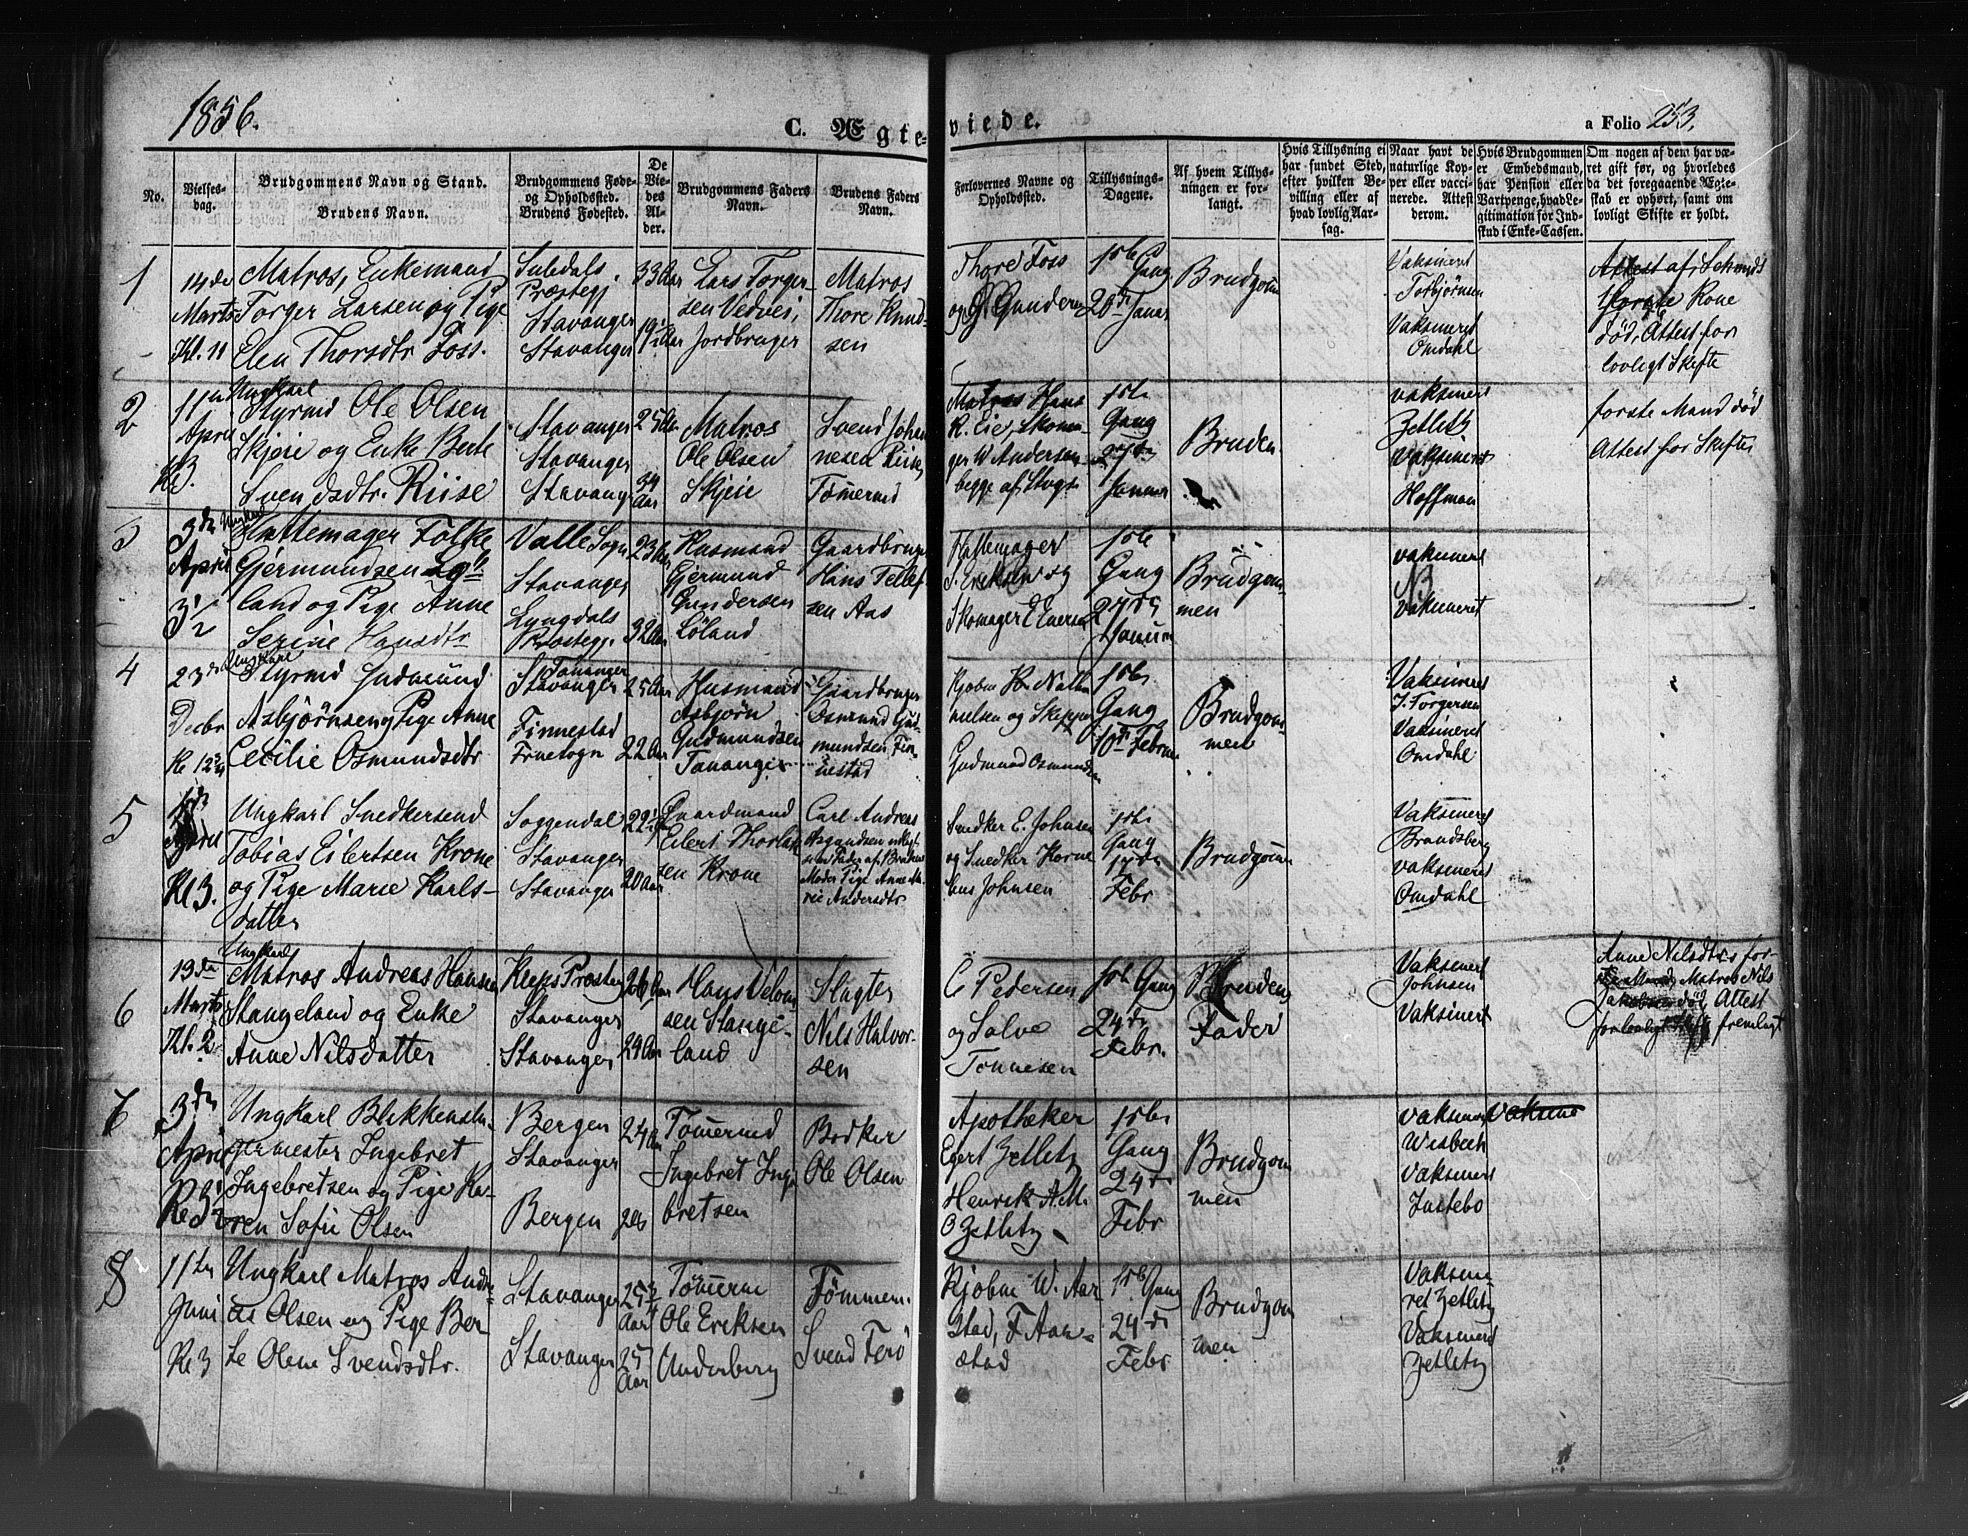 1856.
C. Ægteviede.
a Folio 253.
No.
Vielses-
dag.
Brudgommens Navn og Stand.
Brudens Navn.
Brudgommens Føde-
og Opholdssted.
Brudens Fødested.
De
Vie-
des
Al-
der.
Brudgommens Faders
Navn.
Brudens Faders
Navn.
Forlovernes Navne og
Opholdssted.
Tillysnings-
Dagene.
Af hvem Tillys-
ningen er for-
langt.
Hvis Tillysning ei
har fundet Sted,
efter hvilken Be-
villing eller af
hvad lovlig Aar-
sag.
Naar havt de
naturlige Kop-
per eller vacci-
nerede. Attest
derom.
Hvis Brudgommen
er Embedsmand,
har Pension eller
Vartpenge, hvad Le-
gitimation for Ind-
skud i Enke-Cassen.
Om nogen af dem har væ-
ret gift før, og hvorledes
da det foregaaende Ægte-
skab er ophørt, samt om
lovligt Skifte er holdt.
1
14de
Marts
Kl. 11
Matros, Enkemand
Torger Larsen og Pige
Elen Thorsdtr Foss.
Suledals
Præstegj
Stavanger
Stavanger
33 Aar
19½ Aar
Lars Torger-
sen Vedvei,
Jordbruger
Matros
Thore Knud-
sen
Thore Foss
og G. Gundersen
1ste Gang
20de Januar
Brudgom
Vaksineret
Torbjörnsen
Vaksineret
Omdahl
Attest af
første Kone
död, Attest for
lovligt Skifte
2
11te
April
Kl 3.
Ungkarl
Styrmd Ole Olsen
Skjeie og Enke Berte
Svendsdtr. Riise
Stavanger
Stavanger
Stavanger
25 Aar
34
Aar
Matros
Ole Olsen
Skjeie
Svend Johan
nesen Riise,
Tömermd
Matros Hans
R. Eie, Skoma-
ger W Andersen
begge af
1ste
Gang
27de
Januar
Bruden
vaksineret
Zetlitz
vaksineret
Hoffman
første Mand död
Attest for Skifte
3
3de
April
3½
Ungkarl
Hattemager Folke
Gjermundsen Løh
land og Pige Anne
Serine Hansdtr
Valle Sogn
Stavanger
Lyngdals
Præstegj.
23 Aar
32 Aar
Husmand
Gjermund
Gundersen
Löland
Gaardbruger
Hans Tellef
sen Aas
Hattemager
S. Eriksen og
Skomager E Evensen
1ste
Gang
27de
Januar
Brudgom-
men
vaksineret
NB
vaksineret
4
23de
Decbr
Kl 12¾
Ungkarl
Styrmd Gudmund
Asbjørnsen og Pige Anne
Cecilie Osmundsdtr
Tananger
Stavanger
Finnestad
Fruesogn
25 Aar
22 Aar
Husmand
Asbjørn
Gudmundsen
Tananger
Gaardbruger
Osmund Gud-
mundsen Fin-
nestad
Kjøbm H. Natha
nielsen og Skipper
Gudmund Osmundsen
1ste
Gang
10de Februar
Brudgom-
men
Vaksineret
J. Torgersen
Vaksineret
Omdahl
5
April
Kl 3.
Ungkarl Snedkersvend
Tobias Eilertsen Krone
og Pige Marie Karls-
datter
Soggendal
Stavanger
Stavanger
22½ Aar
20 Aar
Gaardmand
Eilert Thorlak
sen Krone
Carl Andreas
Asgundsen
Fader af Brudens
Moder Pige Anne Ma-
rie Andersdtr
Snedker E. Johnsen
og Snedker Korne
lius Johnsen
1ste
Gang
17de
Febr
Brudgom
Vaksineret
Brandsberg
vaksineret
Omdahl
6
19de
Marts
Kl. 2
Ungkarl
Matros Andreas Hansen
Stangeland og Enke
Anne Nilsdatter
Kleps Prosteg
Stavanger
Stavanger
26 Aar
29 Aar
Hans Velom
sen Stange-
land
Slagter
Nils Halvor-
sen
C Pedersen
og Salve
Tönnesen
1ste Gang
24de
Febr.
Brudens
Fader
Vaksineret
Johnsen
Vaksineret
Anne Nilsdtrs for-
Matros Nils
Jakobsen död, Attest
for lovligt Skifte fremlagt
7
3de
April
Kl 3½
Ungkarl Blikkensla-
germester Ingebret
Ingebretsen og Pige Ka-
ren Sofie Olsen
Bergen
Stavanger
Bergen
24 Aar
26
Tömermd
Ingebret Inge
bretsen
Bødker
Ole Olsen
Apotheker
Egert Zetlitz
Henrik A.M.
O Zetlitz
1ste
Gang
24de
Febr
Brudgom
men
vaksineret
Wisbech
vaksineret
Justebo
vaksine
8
11te
Juni
Kl 3
Ungkarl Matros Andre-
as Olsen og Pige Ber-
te Olene Svendsdtr.
Stavanger
Stavanger
25¾
Aar
25
Aar
Tömerm
Ole Eriksen
Underberg
Tömmerm.
Svend Ferö
Kjøbm W. Aar-
stad, F Aar-
stad
1ste Gang
24de
Febr
Brudgom
men
Vaksine-
ret Zetlitz
Vaksineret
Zetlitz